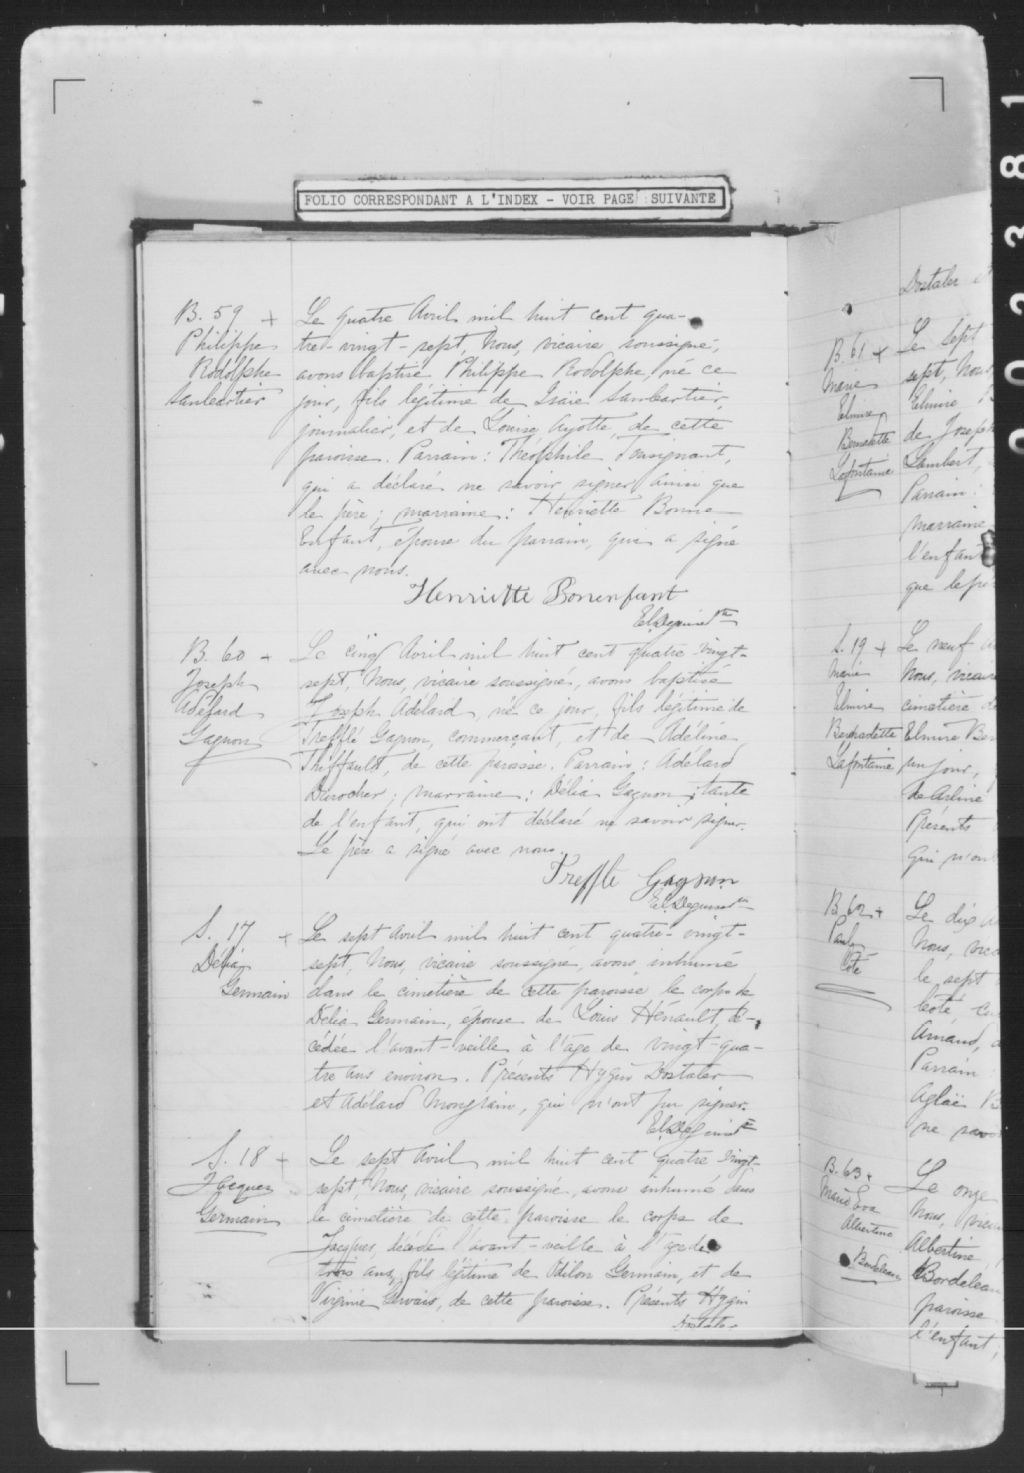 FOLIO CORRESPONDANT A L'INDEX - VOIR PAGE SUIVANTE
B. 59 +
Philippe
Rodolphe
Le quatre Avril mil huit cent qua-
tre-vingt-sept, Nous, vicaire soussigné,
avons baptisé Philippe Rodolphe, né ce
jour, fils légitime de Isaie
journalier, et de Louise Ayotte, de cette
paroisse. Parrain: Théophile Tousignant,
qui a déclaré ne savoir signer ainsi que
le père; marraine: Henriette Bonne
Enfant, épouse du parrain, qui a signé
avec nous.
Henriette Bonenfant
B. 60 +
Joseph
Adélard
Gagnon
Le cinq Avril mil huit cent quatre vingt-
sept, Nous, vicaire soussigné, avons baptisé
Joseph Adélard, né ce jour, fils légitime de
Trefflé Gagnon, commerçant, et de Adéline
Thiffault, de cette paroisse. Parrain: Adélard
Durocher; marraine: Délia Gagnon, tante
de l'enfant, qui ont déclaré ne savoir signer.
Le père a signé avec nous.
Treffle Gagnon
S. 17 +
Délia
Germain
Le sept Avril mil huit cent quatre-vingt-
sept, Nous, vicaire soussigné, avons inhumé
dans le cimetière de cette paroisse le corps de
Délia Germain, épouse de Louis Hénault, dé-
cédée l'avant-veille à l'âge de vingt-qua-
tre ans environ. Présents Hygin Dostaler
et Adélard Mongrain, qui n'ont pu signer.
S. 18 +
Jacques
Germain
Le sept Avril mil huit cent quatre vingt-
sept, Nous, vicaire soussigné, avons inhumé dans
le cimetière de cette paroisse le corps de
Jacques, décédé l'avant-veille à l'âge de
trois ans, fils légitime de Odilon Germain, et de
Virginie Gervais, de cette paroisse. Présents Hygin
Dostaler
Dostaler et
B. 61 +
Marie
Elmire
Bernadette
Lafontaine
Le sept
sept, Nous
Elmire
de Joseph
Lambert,
Parrain:
marraine
l'enfant
que le père
S. 19 +
Marie
Elmire
Bernadette
Lafontaine
Le neuf
Nous, vicaire
cimetière de
Elmire Ber
un jour,
de Arline
Présents
qui n'ont
B. 62 +
Paul
Côté
Le dix
Nous, vica
le sept
Côté,
Arnaud,
Parrain
Aglaë
ne savo
B. 63 +
Eva
Albertine
Bordeleau
Le onze
Nous, vicai
Albertine
Bordeleau
paroisse
l'enfant,
002381